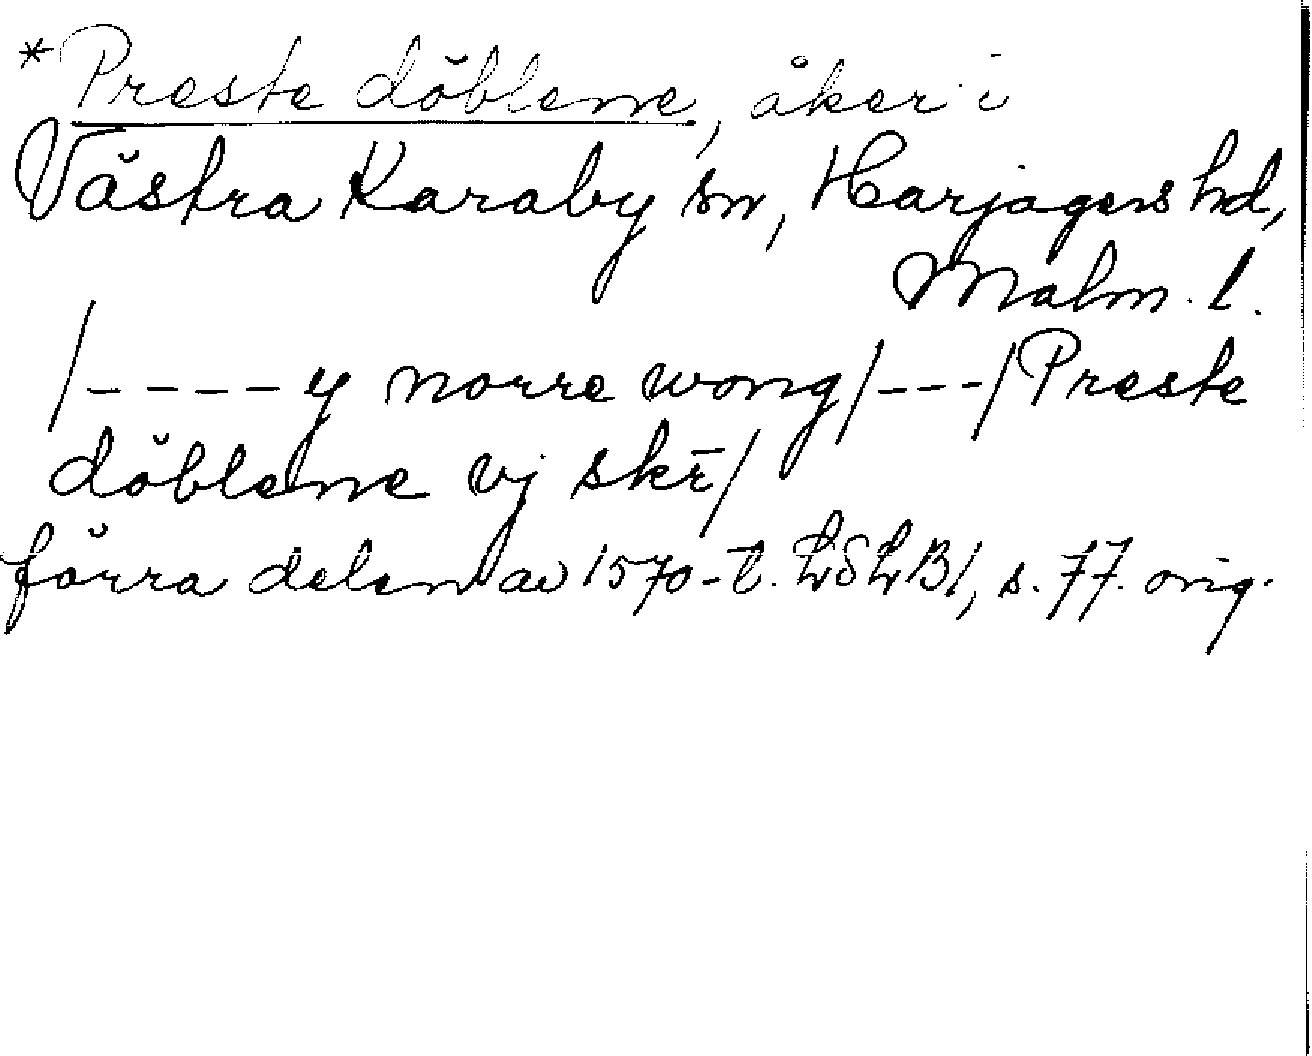 *Preste döblene, åker i
Västra Karaby sn, Harjagers hd,
Malm. l.
/---- y norre wong/---/Preste
döblene vj skr̄/
förra delen av 1570-t. LSLB1, s. 77. orig.